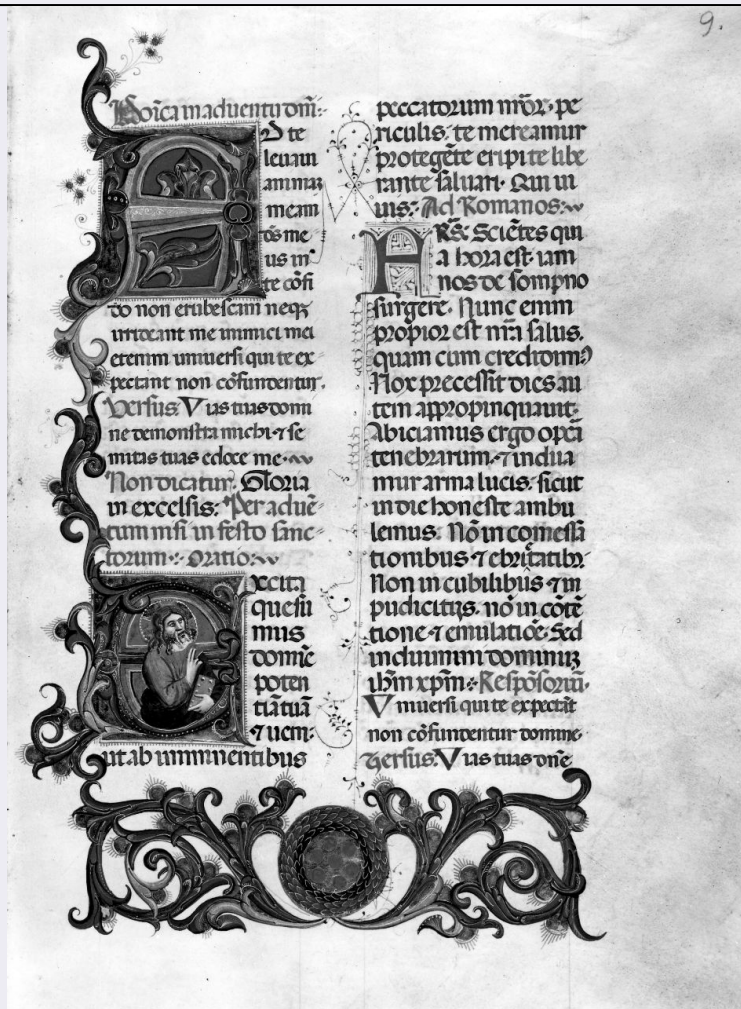 9.
Doīca in aduentu dōm̄:
AD te
leuaui
animaʒ
meam
dēs me
us in
te cōfi
do non erubescam neqʒ
irrideant me inimici mei
etenim uniuersi qui te ex
pectant non cōfundentur.
Versus. Vias tuas domi
ne demonstra michi ⁊ se
mitas tuas edoce me.
Non dicatur. Gloria
in excelsis. Per aduē
tum nisi in festo sanc
torum. Oratio.
Excita
quesu
mus
domīe
poten
tiā tuā
⁊ ueni:
ut ab imminentibus
peccatorum nr̄oꝝ pe
riculis. te mereamur
protegēte eripi te libe
rante saluari. Qui ui
uis. Ad Romanos.
FRS̄. Sciētes qui
a hora est iam
nos de sompno
surgere. Nunc enim
propior est nr̄a salus.
quam cum credidim⁹
Nox precessit dies au
tem appropinquauit.
Abiciamus ergo opera
tenebrarum. ⁊ indua
mur arma lucis. sicut
in die honeste ambu
lemus. Nō in comessa
tionibus ⁊ ebrietatibꝫ
Non in cubilibus ⁊ in
pudicitijs. nō in cōtē
tione ⁊ emulatiōe. Sed
induimini dominuʒ
ihm̄ xpm̄. Respōsoriū.
Vniuersi qui te expectāt
non cōfundentur domine
Versus. Vias tuas dn̄e